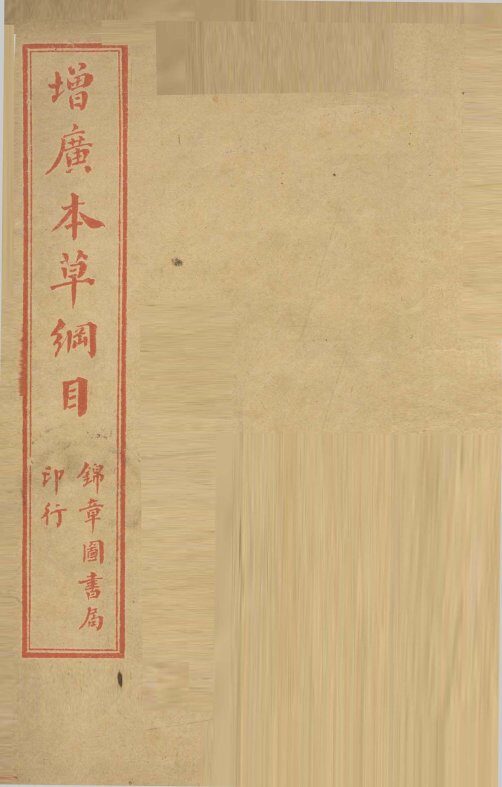 增廣本草綱目
錦章圖書局
印行